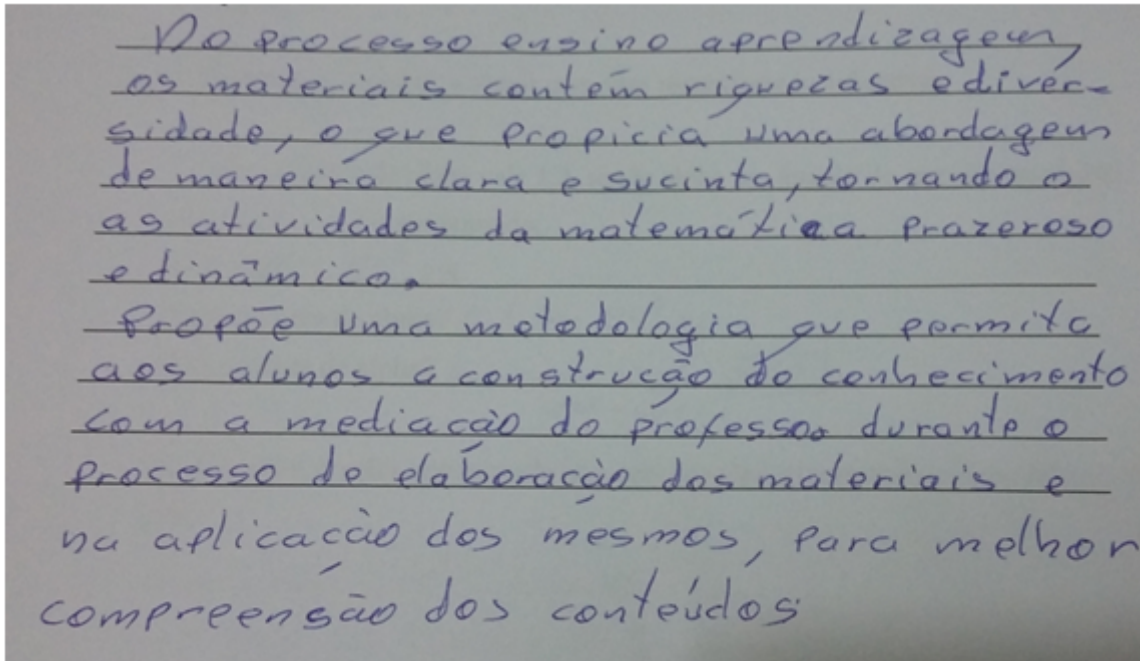 No processo ensino aprendizagem,
os materiais contêm riquezas e diver-
sidade, o que propicia uma abordagem
de maneira clara e sucinta, tornando o
as atividades da matemática prazeroso
e dinâmico.
Propõe uma metodologia que permita
aos alunos a construção do conhecimento
com a mediação do professor durante o
processo de elaboração dos materiais e
na aplicação dos mesmos, para melhor
compreensão dos conteúdos